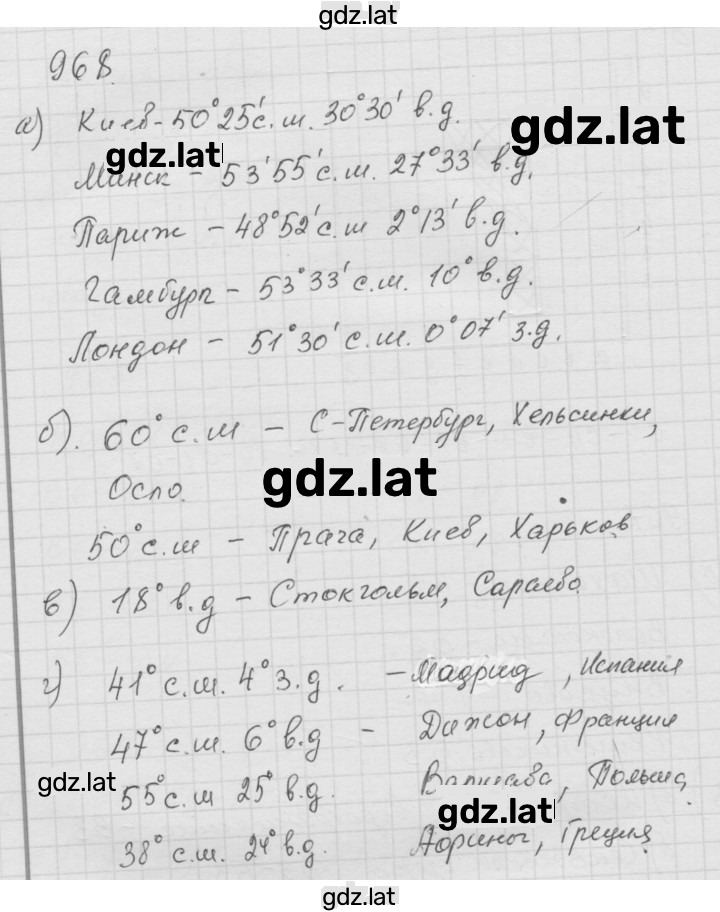 gdz.lat
968.
а) Киев - 50°25' с.ш. 30°30' в.д.
gdz.lat
gdz.lat
Минск - 53'55' с.ш. 27°33' в.д.
Париж - 48°52' с.ш 2°13' в.д.
Гамбург - 53°33' с.ш. 10° в.д.
Лондон - 51°30' с.ш. 0°07' з.д.
б). 60° с.ш - С-Петербург, Хельсинки,
gdz.lat
Осло.
50° с.ш - Прага, Киев, Харьков
в) 18° в.д - Стокгольм, Сараево.
г) 41° с.ш. 4° з.д. - Мадрид, Испания
47° с.ш. 6° в.д - Дижон, Франция
gdz.lat
55° с.ш 25° в.д. Варшава, Польша,
gdz.lat
38° с.ш. 24° в.д. Афины, Греция
gdz.lat